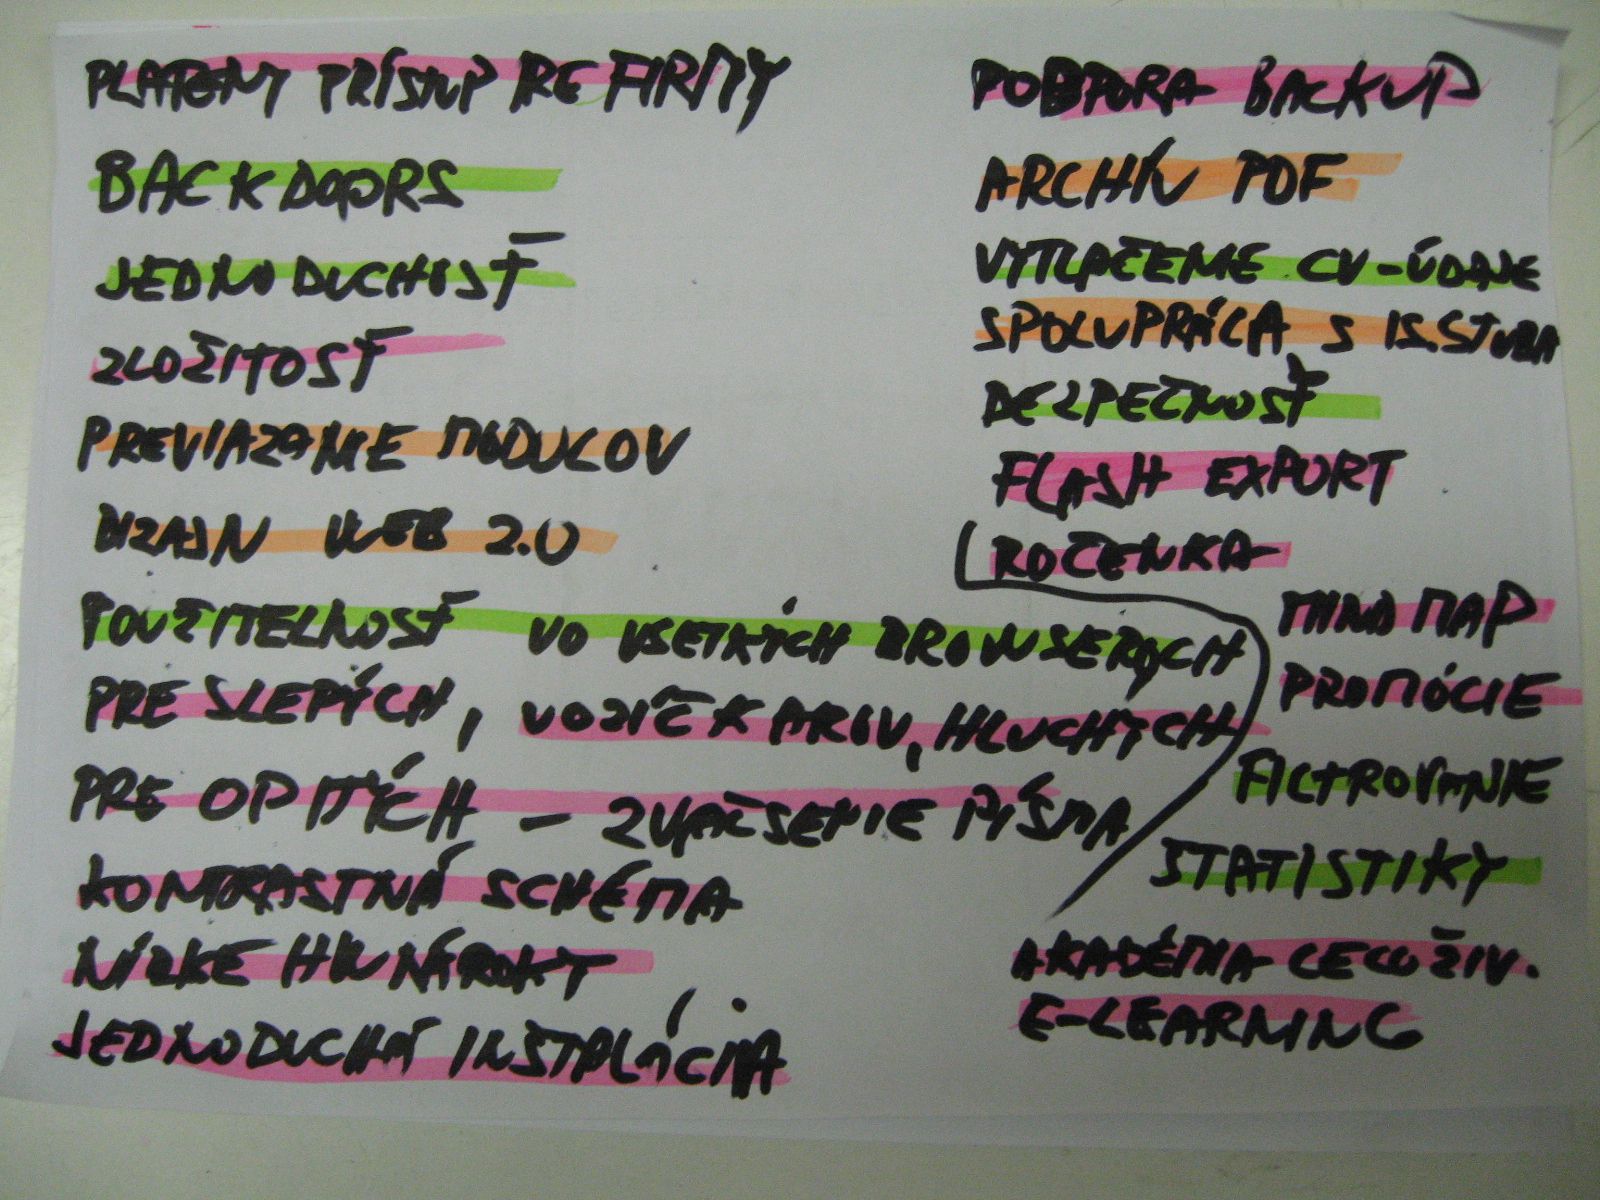 PLATENÝ PRÍSTUP PRE FIRMY
BACKDOORS
JEDNODUCHOSŤ
ZLOŽITOSŤ
PREVIAZANIE MODULOV
DIZAJN WEB 2.0
POUŽITEĽNOSŤ VO VŠETKÝCH BROWSEROCH
PRE SLEPÝCH, VOZÍČKAROV, HLUCHÝCH
PRE OPITÝCH - ZVÄČŠENIE PÍSMA
KONTRASTNÁ SCHÉMA
NÍZKE HW NÁROKY
JEDNODUCHÁ INŠTALÁCIA
PODPORA BACKUP
ARCHÍV PDF
VYTLAČENIE CV-ÚDAJE
SPOLUPRÁCA S IS.STUBA
BEZPEČNOSŤ
FLASH EXPORT
ROČENKA
MIND MAP
PROMÓCIE
FILTROVANIE
ŠTATISTIKY
AKADÉMIA CELOŽIV.
E-LEARNING